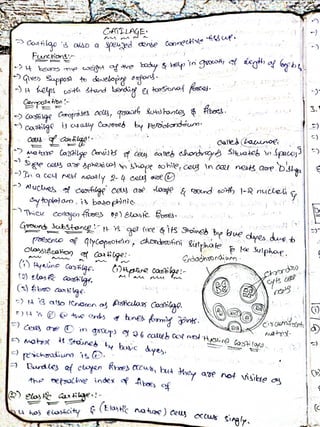 CATILAGE:-
-> Cartilage is also a speclzed dense connective tissue.
Functions:-
-> It bears the weight of the body & help in growth of length of
-> Gives Support to developing organs.
-> It helps with stand bending & torsional forces.
Composition:-
-> Cartilage comprises cells, ground substances & fibres.
-> Cartilage is usually covered by perichondrium.
Cells of Cartilage:-
called (Lacunae)
-> Mature Cartilage consists of cells called chondrocytes situated in spaces
-> Single cells are spherical in shape while, cells in cell nests are
-> In a cell nest nearly 2-4 cells are
-> Nucleus of cartilage cells are large & round with 1-2 nucleoli &
Cytoplasm is basophilic
-> Thick collagen fibres (or) elastic fibres.
Ground Substance:- It is gel like & its stained by blue dyes due to
presence of Glycoprotein, chondroitin Sulphate
Classification of Cartilage:-
(1) Hyaline Cartilage.
(1) Hyaline Cartilage:-
(2) elastic Cartilage.
(3) fibro cartilage
chondro
cyte cell
nests
-> It is also known as Articular Cartilage.
-> It is @ the ends of bones forming joints.
-> Cells are in groups of 2-6 called cell nest
Hyaline Cartilage
matrix.
-> Matrix is stained by basic dyes.
-> perichondrium is
-> Bundles of collagen fibres occurs, but they are not visible as
the refractive index of fibres of
(2) Elastic Cartilage:-
It has elasticity & (Elastic nature) cells occurs singly.